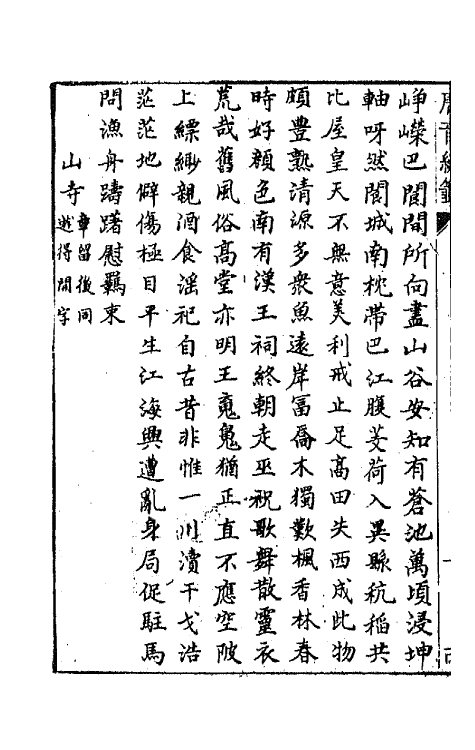 峥嶸巴閬間所向盡山谷安知有蒼池萬頃浸坤
軸呀然閬城南枕帶巴江腹芰荷入異縣秔稻共
比屋皇天不無意美利戒止足高田失西成此物
頗豊熟清源多衆魚遠岸冨喬木獨歎楓香林春
時好顔色南有漢王祠終朝走巫祝歌舞散靈衣
荒哉舊風俗高堂亦明王魂魄猶正直不應空陂
上縹緲親酒食滛祀自古昔非惟一川瀆干戈浩
茫茫地僻傷極目平生江海興遭亂身局促駐馬
問漁舟躊躇慰羈束
山寺
章留後同
遊得開字